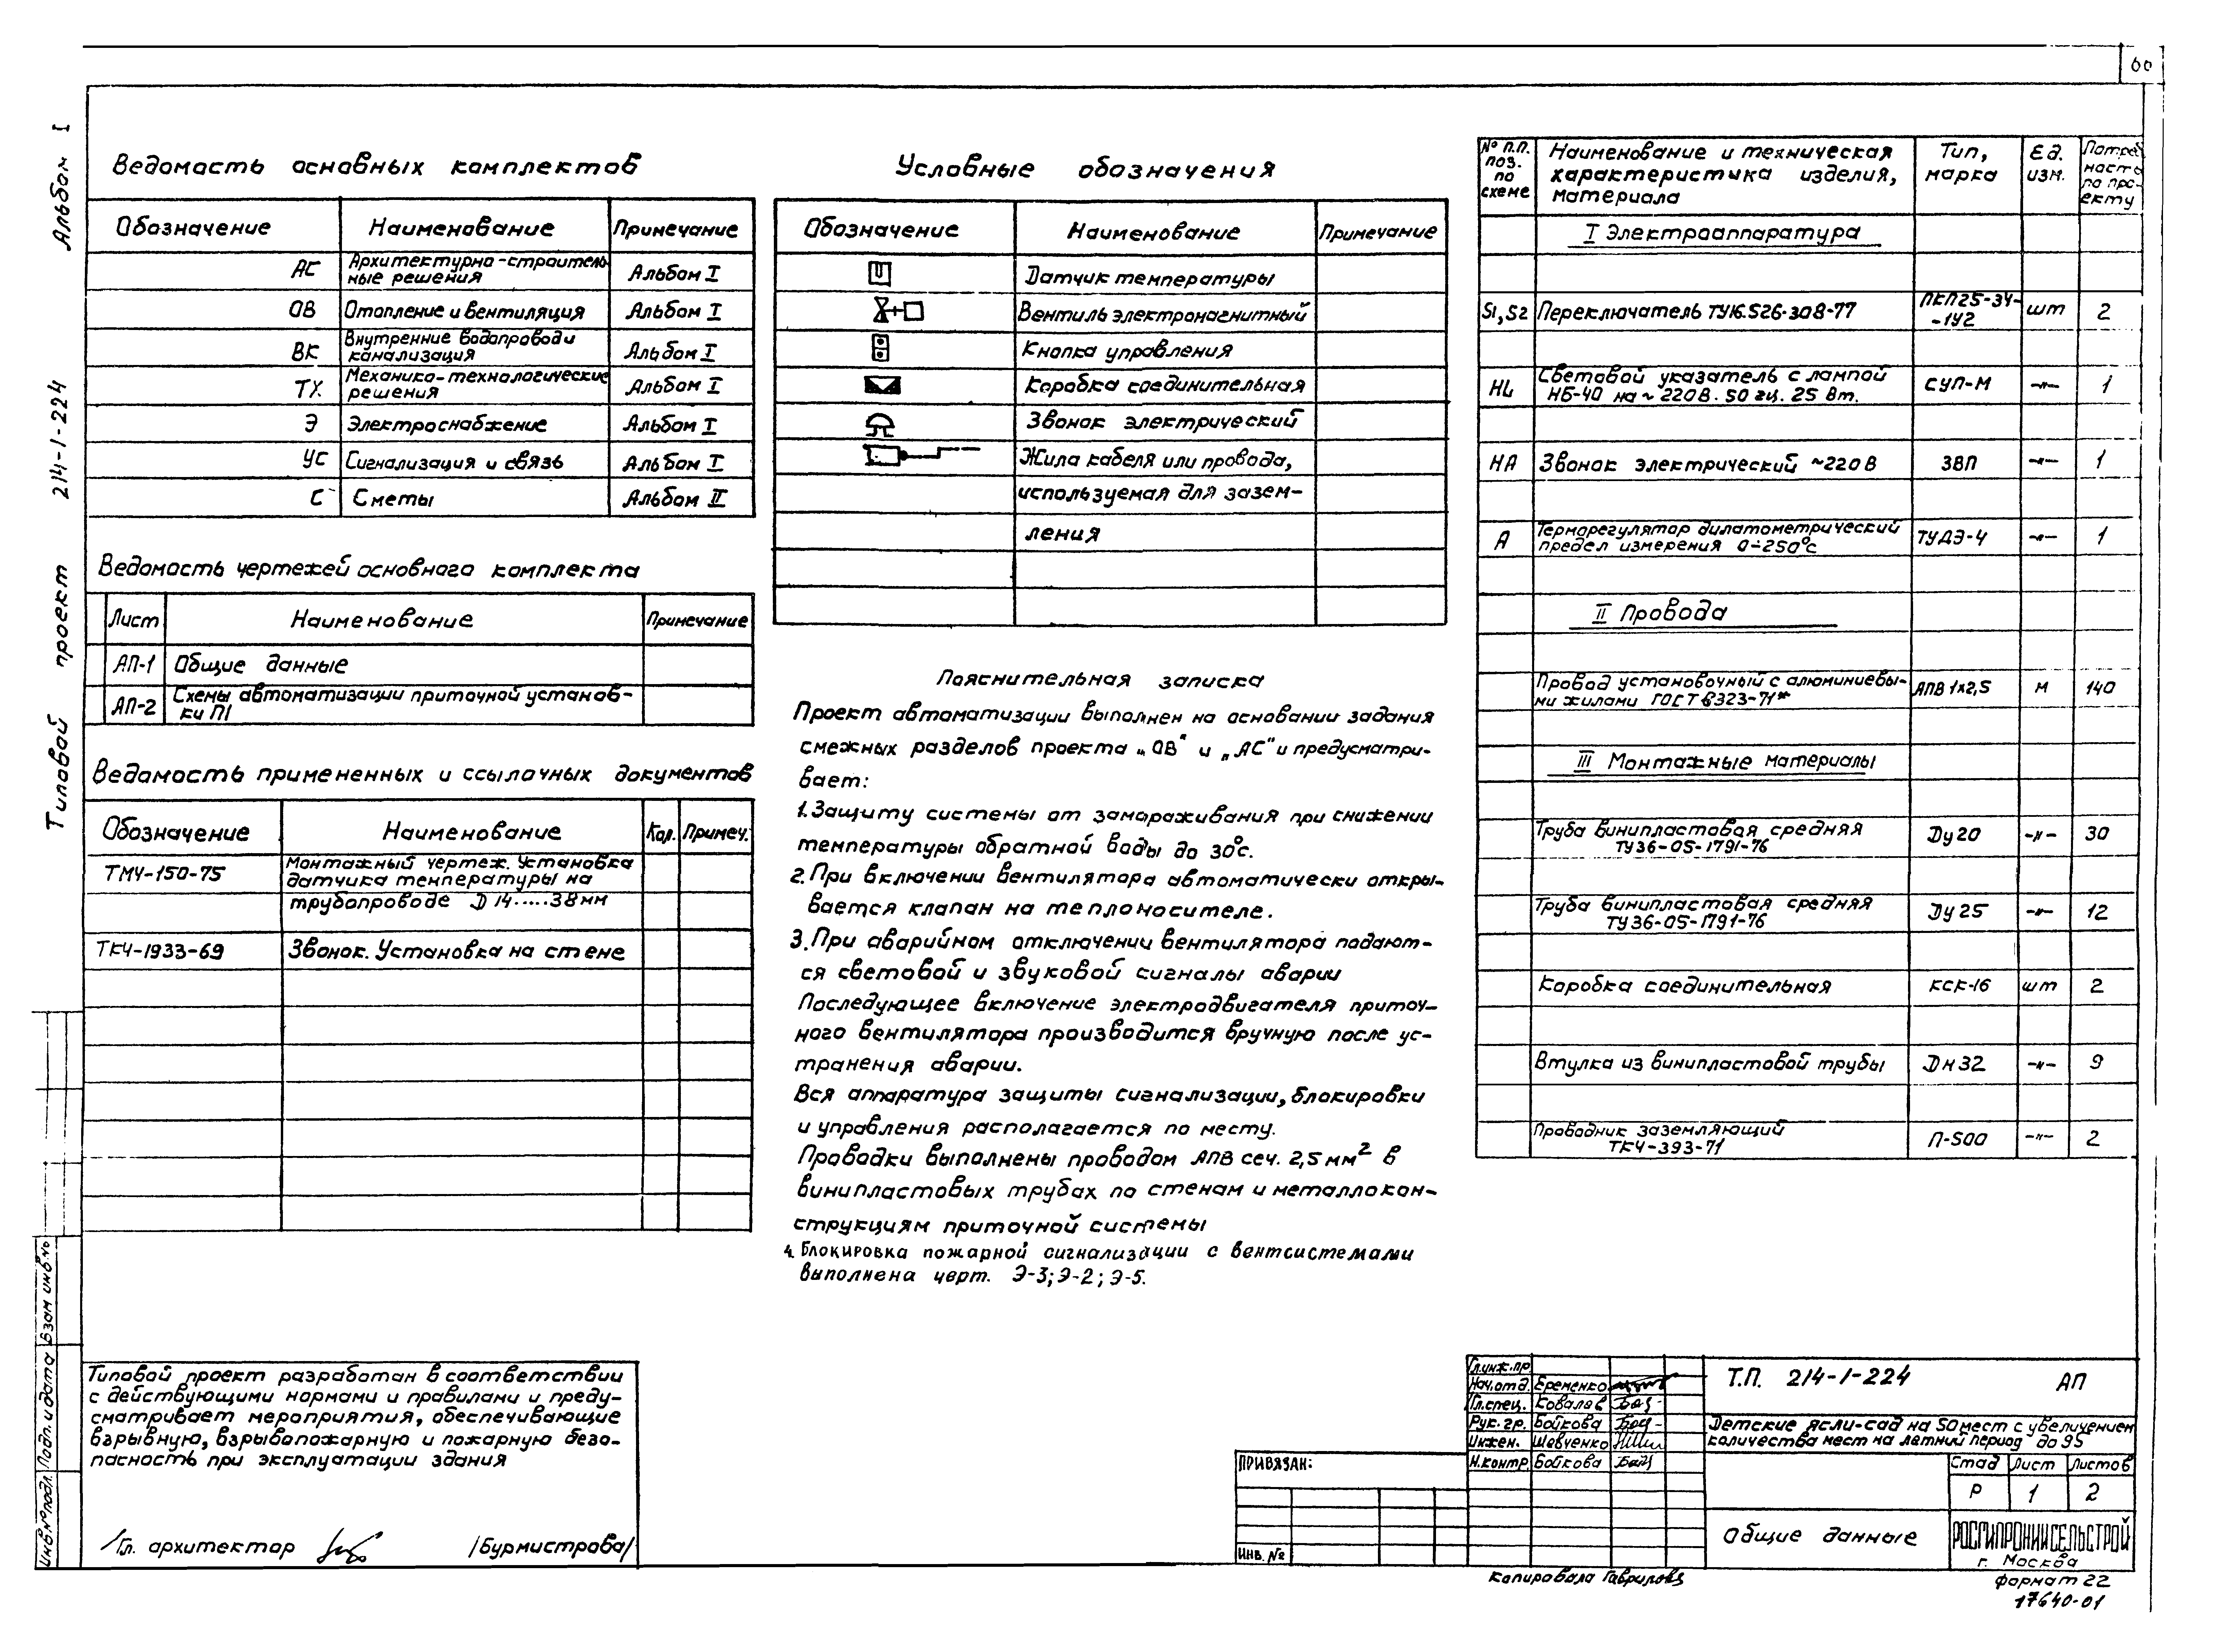 60
Альбом I
Типовой проект 214-1-224
Ведомость основных комплектов
Обозначение Наименование Примечание
АС Архитектурно-строитель-
ные решения Альбом I
ОВ Отопление и вентиляция Альбом I
ВК Внутренние водопровод и
канализация Альбом I
ТХ. Механико-технологические
решения Альбом I
Э Электроснабжение Альбом I
УС Сигнализация и связь Альбом I
С Сметы Альбом II
Ведомость чертежей основного комплекта
Лист Наименование Примечание
АП-1 Общие данные
АП-2 Схемы автоматизации приточной установ-
ки П1
Ведомость примененных и ссылочных документов
Обозначение Наименование Кол. Примеч.
ТМЧ-150-75 Монтажный чертеж. Установка
датчика температуры на
трубопроводе D 14.....38мм
ТКЧ-1933-69 Звонок. Установка на стене
Типовой проект разработан в соответствии
с действующими нормами и правилами и преду-
сматривает мероприятия, обеспечивающие
взрывную, взрывопожарную и пожарную безо-
пасность при эксплуатации здания
/Гл. архитектор /Бурмистрова/
Взам инв.№
Подп. и дата
Инв.№ подл.
Условные обозначения
Обозначение Наименование Примечание
Датчик температуры
Вентиль электромагнитный
Кнопка управления
Коробка соединительная
Звонок электрический
Жила кабеля или провода,
используемая для зазем-
ления
Пояснительная записка
Проект автоматизации выполнен на основании задания
смежных разделов проекта „ОВ" и „АС" и предусматри-
вает:
1. Защиту системы от замораживания при снижении
температуры обратной воды до 30°с.
2. При включении вентилятора автоматически откры-
вается клапан на теплоносителе.
3. При аварийном отключении вентилятора подают-
ся световой и звуковой сигналы аварии
Последующее включение электродвигателя приточ-
ного вентилятора производится вручную после ус-
транения аварии.
Вся аппаратура защиты сигнализации, блокировки
и управления располагается по месту.
Проводки выполнены проводом АПВ сеч. 2,5 мм² в
винипластовых трубах по стенам и металлокон-
струкциям приточной системы
4. Блокировка пожарной сигнализации с вентсистемами
выполнена черт. Э-3; Э-2; Э-5.
№ П.П.
поз.
по
схеме Наименование и техническая
характеристика изделия,
материала Тип,
марка Ед.
изм. Потреб
ность
по про-
екту
I Электроаппаратура
S1, S2 Переключатель ТУ16.526-308-77 ПКП25-34-
-1У2 шт 2
HL Световой указатель с лампой
НБ-40 на ~ 220В. 50 гц. 25 Вт. СУП-М -"- 1
НА Звонок электрический ~220 В ЗВП -"- 1
А Терморегулятор дилатометрический
предел измерения 0÷250°с ТУДЭ-4 -"- 1
II Провода
Провод установочный с алюминиевы-
ми жилами ГОСТ 6323-71* АПВ 1х2,5 м 140
III Монтажные материалы
Труба винипластовая средняя
ТУ36-05-1791-76 Ду 20 -"- 30
Труба винипластовая средняя
ТУ36-05-1791-76 Ду 25 -"- 12
Коробка соединительная КСК-16 шт 2
Втулка из винипластовой трубы Дн 32 -"- 9
Проводник заземляющий
ТКЧ-393-71 П-500 -"- 2
ПРИВЯЗАН:
ИНВ. №
Гл.инж.пр
Нач.отд. Еременко
Гл.спец. Ковалев
Рук. гр. Бойкова
Инжен. Шевченко
Н.контр. Бойкова
Т.П. 214-1-224 АП
Детские ясли-сад на 50 мест с увеличением
количества мест на летний период до 95
Стад Лист Листов
Р 1 2
Общие данные
РОСГИПРОНИИСЕЛЬСТРОЙ
г. Москва
Копировала Гаврилова
формат 22
17640-01